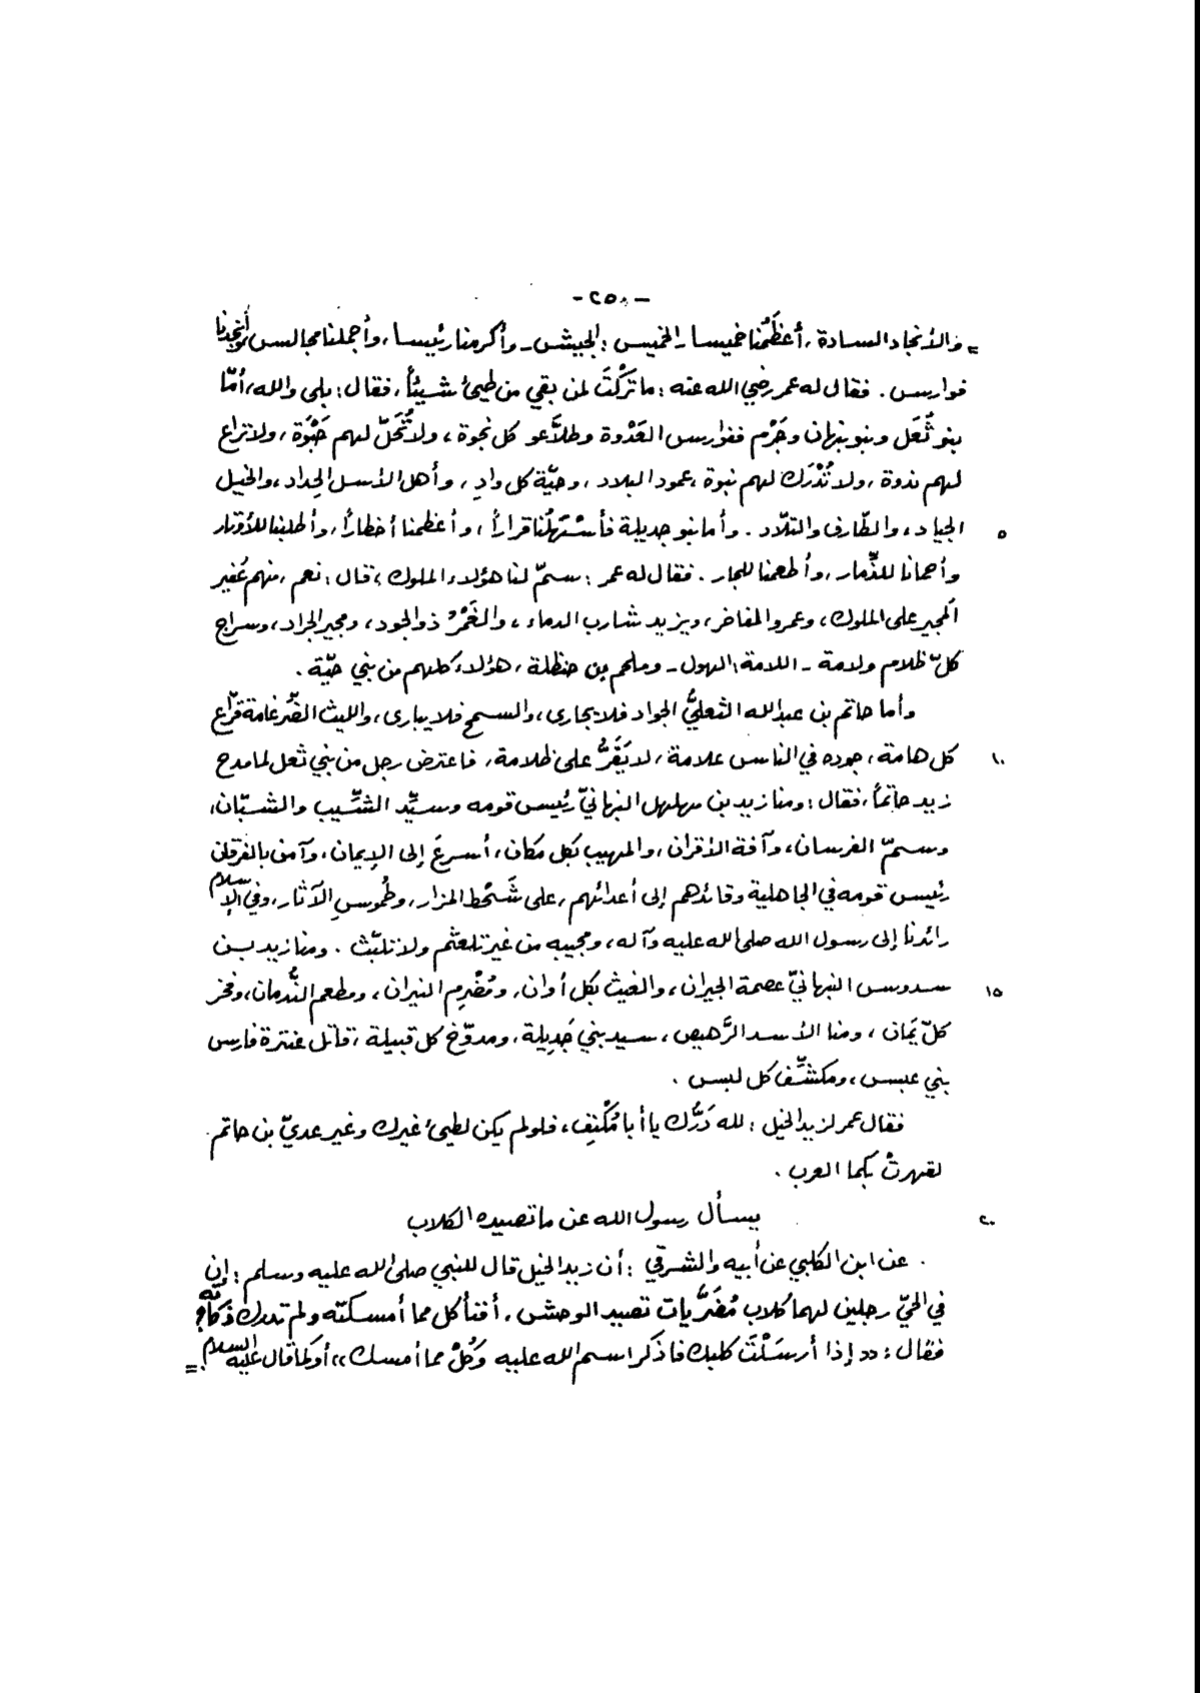 - ٢٥٨ -
= والأنجاد السادة، أعظَمُنا خميسا - الخميس: الجيش - وأكرمنا رئيسا، وأجملنا مجالس، وأنجدنا
فوارس. فقال له عمر رضي الله عنه: ما تركْتَ لمن بقي من طيئ شيئاً، فقال: بلى والله، أمّا
بنو ثُعَل وبنو نبهان وجَرْم ففوارس العَدْوة وطلاَّعو كل نجوة، ولا تُحَلّ لهم حَبْوَة، ولا تراع
لهم ندوة، ولا تُدْرَك لهم نبوة، عمود البلاد، وحيّة كل وادٍ، وأهل الأسل الحِداد، والخيل
٥ الجياد، والطّارف والتلّاد. وأما بنو جديلة فأسْهَلُنا قراراً، وأعظمنا أخطاراً، وأطلبنا للأوتار
وأحمانا للذِّمار، وأطعمنا للجار. فقال له عمر: سمّ لنا هؤلاء الملوك، قال: نعم، منهم عُفير
المجير على الملوك، وعمرو المفاخر، ويزيد شارب الدماء، والغَمْرُ ذو الجود، ومجير الجراد، وسراج
كلّ ظلام ولامة - اللامة: الهول - وملحم بن حنظلة، هؤلاء كلهم من بني حيّة.
وأما حاتم بن عبدالله الثعليُّ الجواد فلا يجارى، والسمح فلا يبارى، والليث الضّرغامة قرّاع
١٠ كل هامة، جوده في الناس علامة، لا يَقَرُّ على ظلامة، فاعترض رجل من بني ثعل لما مدح
زيد حاتماً، فقال: ومنا زيد بن مهلهل النبهانيّ رئيس قومه وسيِّد الشِّيب والشبّان،
وسمّ الفرسان، وآفة الأقران، والمهيب بكل مكان، أسرعَ إلى الإيمان، وآمن بالفرقان
رئيس قومه في الجاهلية وقائدهم إلى أعدائهم، على شَحْط المزار، وطُموسِ الآثار، وفي الإسلام
رائدنا إلى رسول الله صلى الله عليه وآله، ومجيبه من غير تلعثم ولا تلبّث. ومنا زيد بن
١٥ سدوس النبهانيّ عصمة الجيران، والغيث بكل أوان، ومُضْرِم النيران، ومطعم النُّدمان، وفخر
كلّ يَمان، ومنا الأسد الرَّهيص، سيد بني جَدِيلة، ومدوّخ كل قبيلة، قاتل عنترة فارس
بني عبس، ومكشِّف كل لبس.
فقال عمر لزيد الخيل: لله دَرُّك يا أبا مُكْنِفِ، فلو لم يكن لطيئ غيرك وغير عديّ بن حاتم
لقهرتْ بكما العرب.
٢٠ يسأل رسول الله عن ما تصيده الكلاب
عن ابن الكلبي عن أبيه والشرقي: أن زيد الخيل قال للنبي صلى الله عليه وسلم: إن
في الحيّ رجلين لهما كلاب مُضَرَّيات تصيد الوحش، أفنأكل مما أمسكته ولم تدرك ذكاته؟
فقال: «إذا أرسَلْتَ كلبك فاذكر اسم الله عليه وَكُلْ مما أمسك» أو كما قال عليه السلام. =